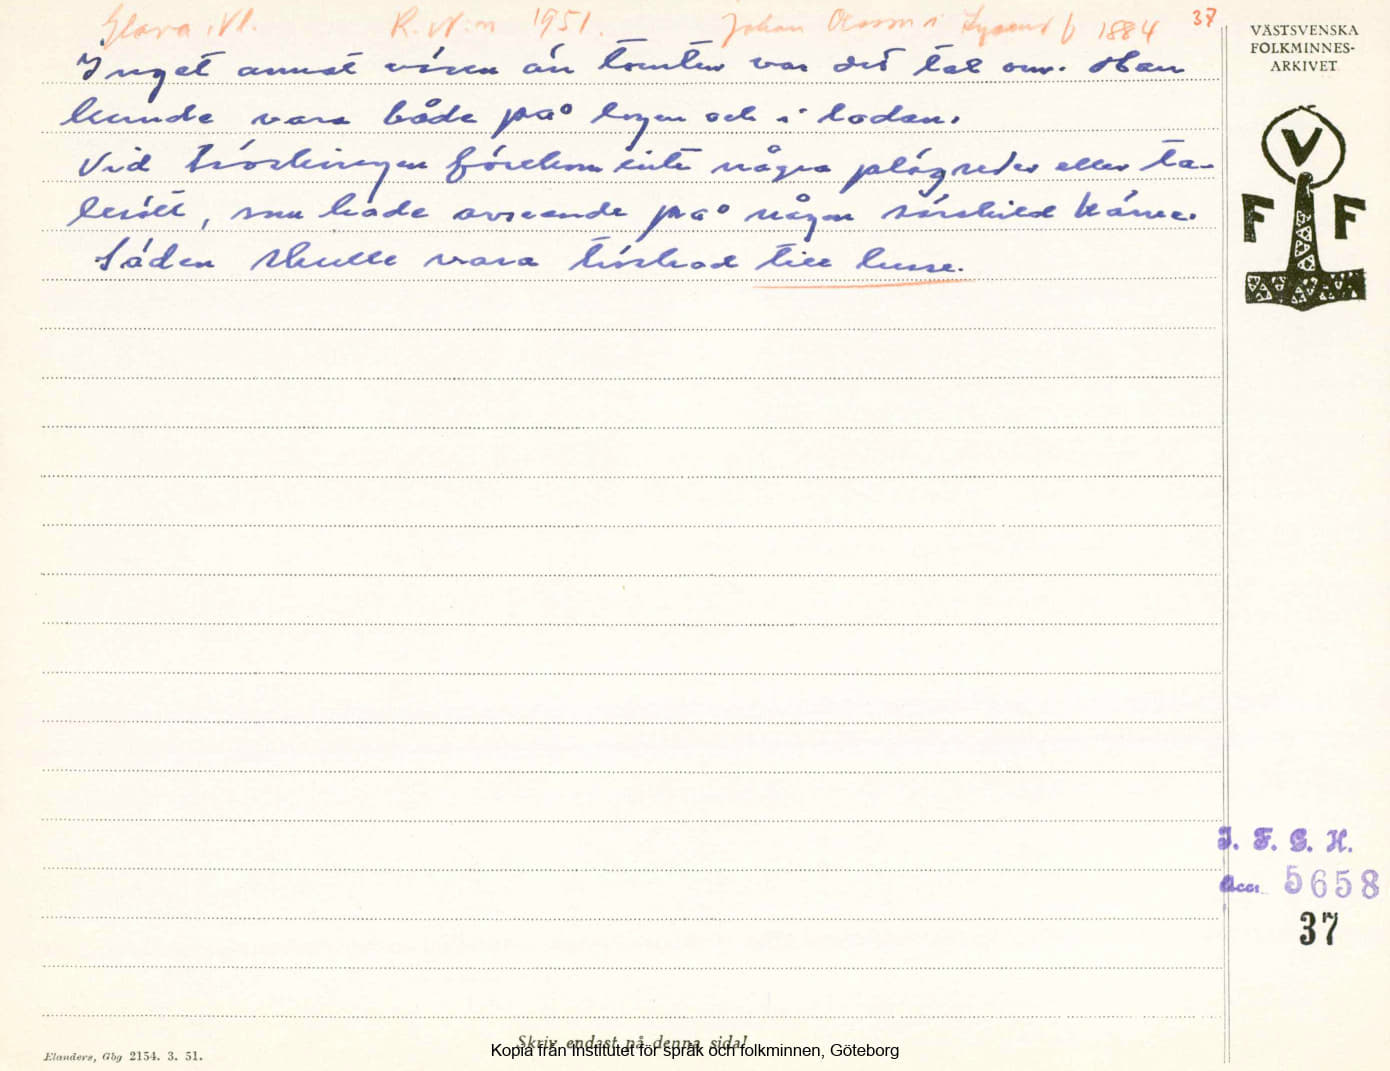 Glava, Vl. R. N:n 1951. Johan Olsson i f 1884 37
Inget annat väsen än tomten var det tal om. Han
kunde vara både på logen och i ladan.
Vid tröskningen förekom inte några plägseder eller ta-
lesätt, som hade avseende på någon särskild kärve.
Säden skulle vara tröskad till lusse.
VÄSTSVENSKA
FOLKMINNES-
ARKIVET
V
F F
I. F. G. H.
Acc. 5658
37
Skriv endast på denna sida!
Kopia från Institutet för språk och folkminnen, Göteborg
Elanders, Gbg 2154. 3. 51.